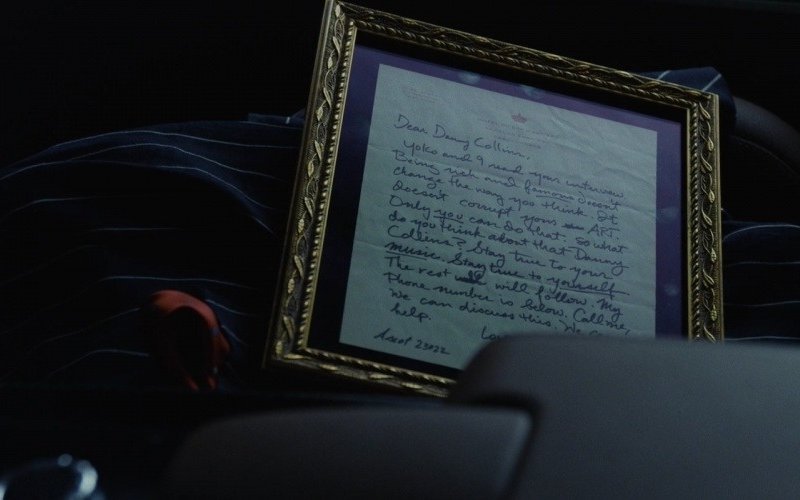 Dear Danny Collins,
Yoko and I read your interview
Being rich and famous doesn't
change the way you think. It
Doesn't corrupt your ART.
Only you can do that. So what
do you think about that Danny
Collins? Stay true to your
music. Stay true to yourself
The rest will follow. My
Phone number is below. Call me,
We can discuss this. We
help.
Ascot 23022